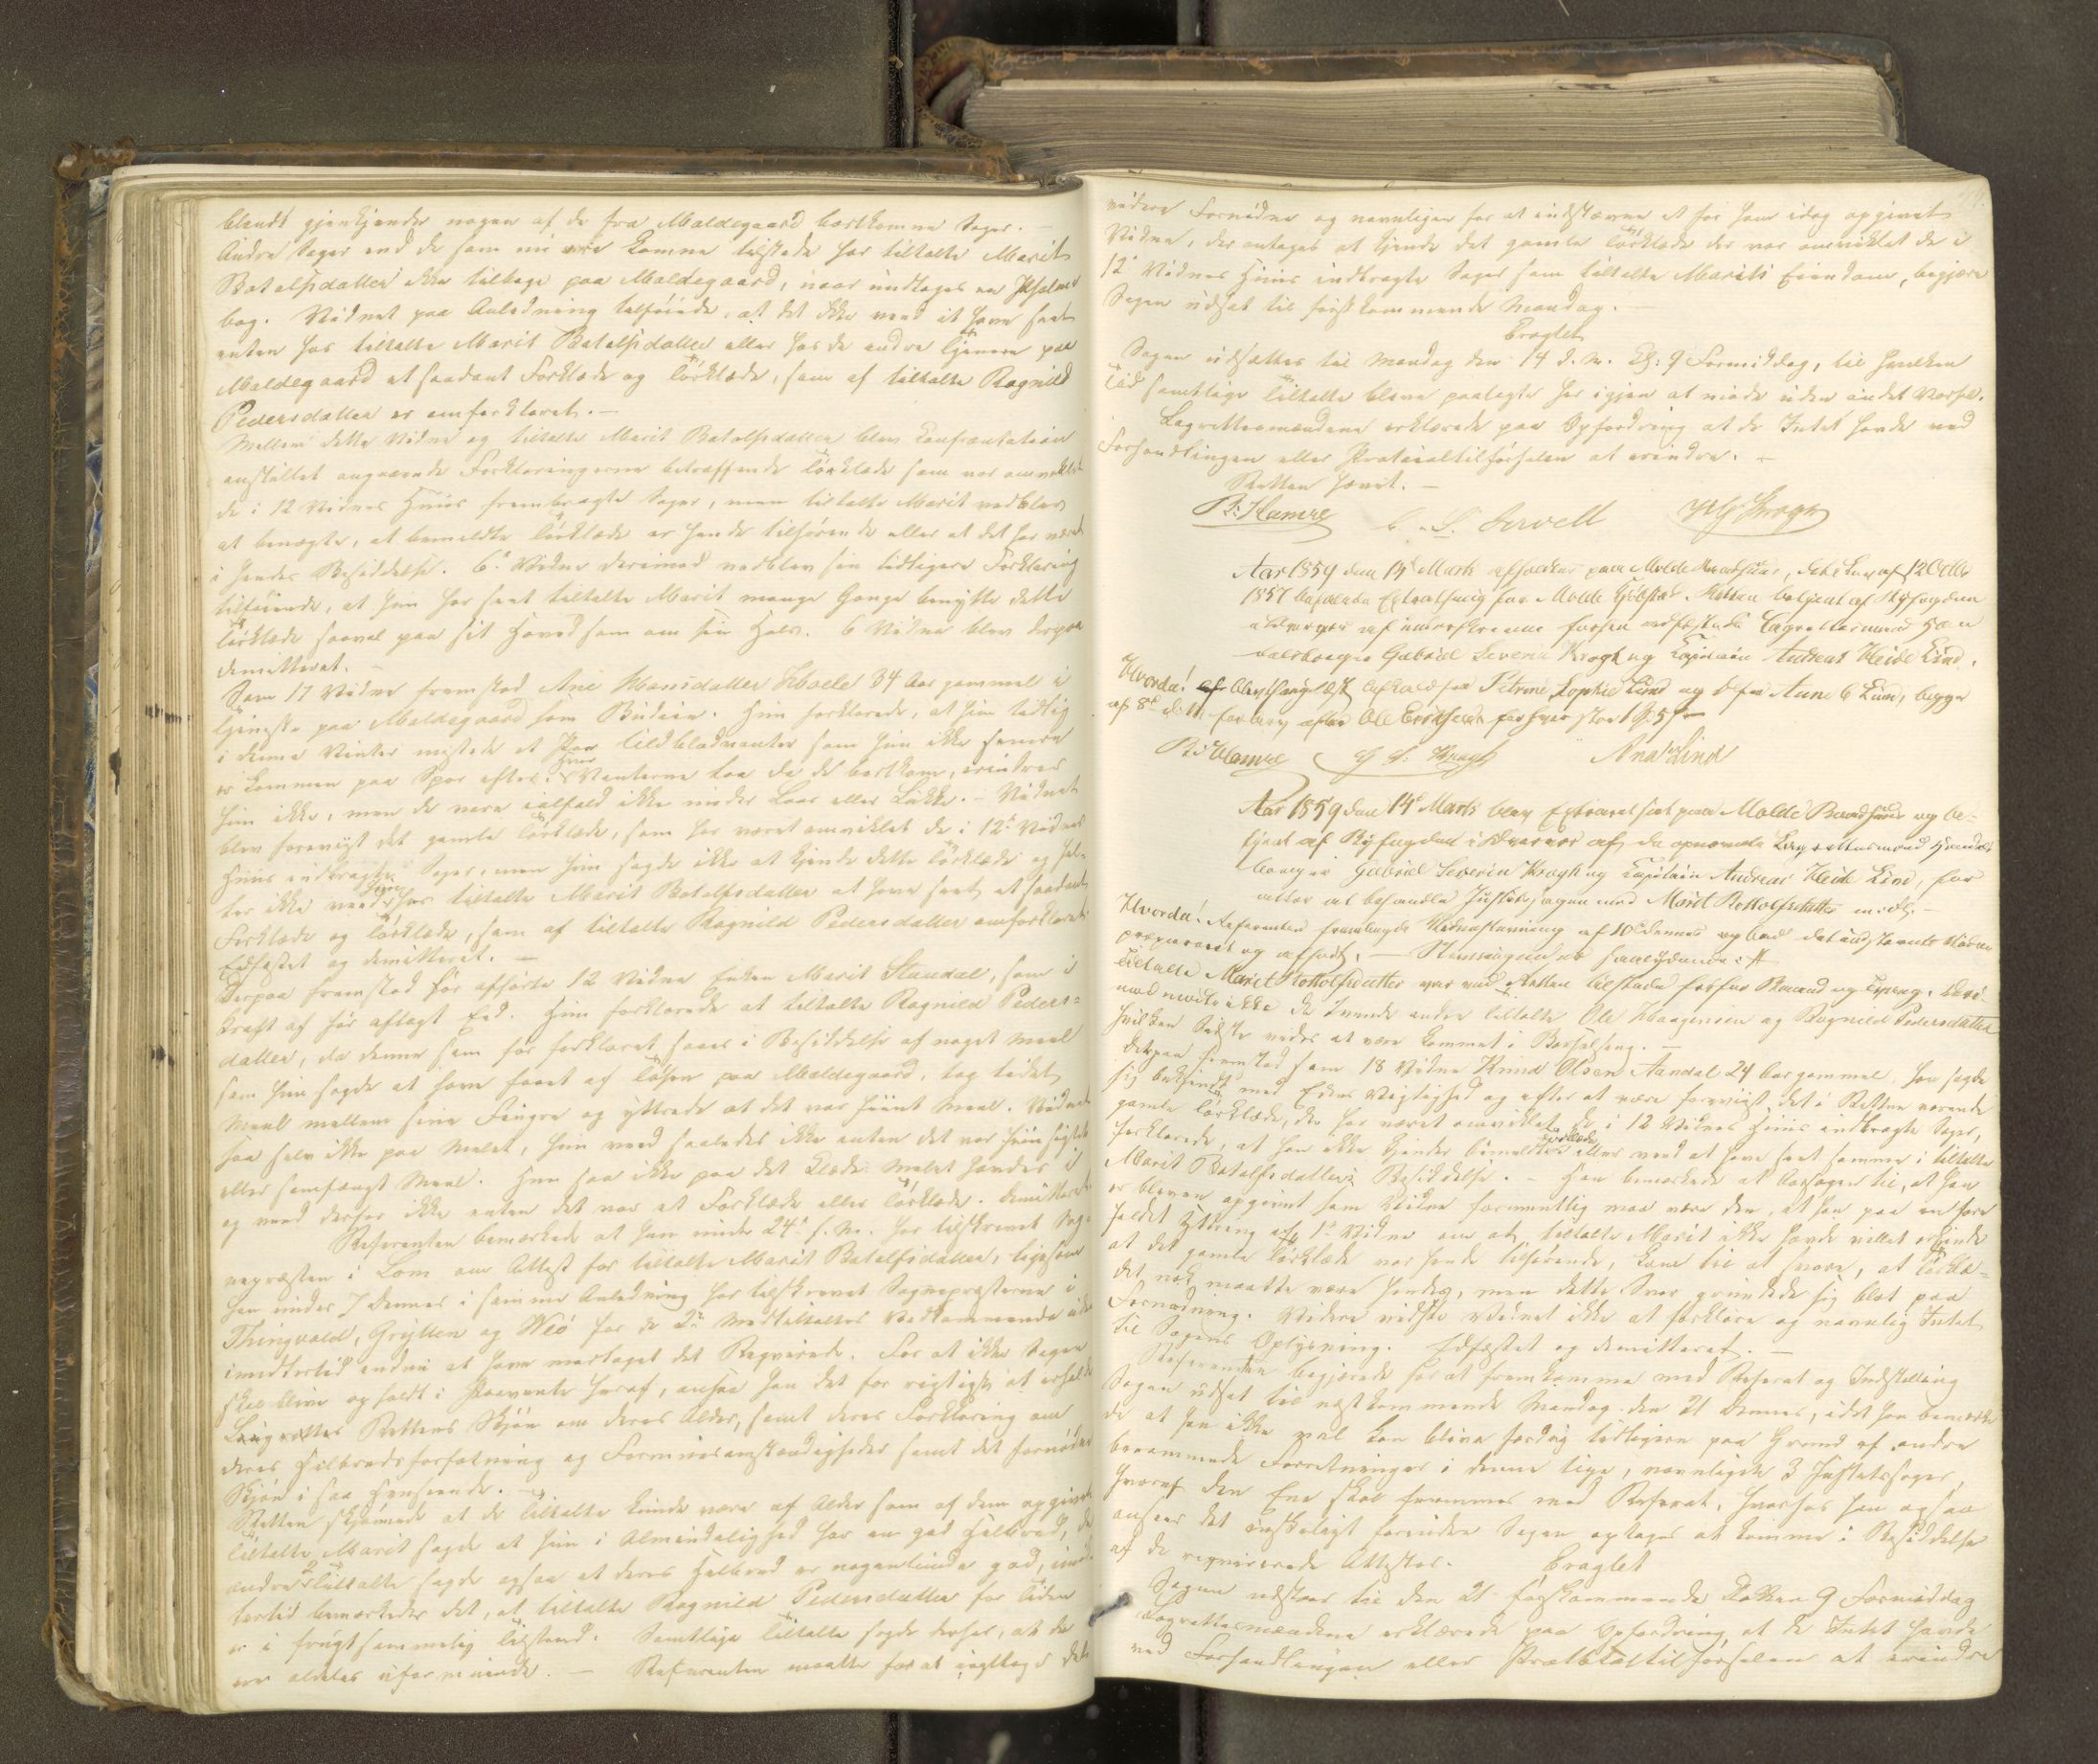 blandt gjenkjender nogen af de fra Moldegaard bortkomne Sager. —
Andre Sager end de som nu ere komne tilstede har tiltalte Marit
Botolfsdatter ikke tilbage paa Moldegaard, naar undtages en Psalme-
bog. Vidnet paa Anledning tilföiede, at det ikke veed at have seet
enten hos tiltalte Marit Botolfsdatter eller hos de andre Tjenere paa
Moldegaard et saadant Forklæde og Törklæde, som af tiltalte Ragnild
Pedersdatter er omforklaret. —
Mellem dette Vidne og tiltalte Marit Botolfsdatter blev Confrontation
anstillet angaaende Forklaringerne betræffende Törklæde som var omviklet
de i 12 Vidnes Huus frembragte Sager, men tiltalte Marit vedblev
at benægte, at bemeldte Törklæde er hende tilhörende eller at det har været
i hendes Besiddelse. 6te Vidne derimod vedblev sin tidligere Forklaring
tilföiende, at hun har seet tiltalte Marit mange Gange benytte dette
Törklæde saavel paa sit Hoved som om sin Hals. 6 Vidne blev derpaa
demitteret. —
Som 17 Vidne fremstod Ane Hansdatter 34 Aar gammel i
Tjeneste paa Moldegaard som Budeie. Hun forklarede, at hun tidlig
i denne Vinter mistede et Par som hun ikke senere
er kommen paa Spor efter. Hvor Vanterne laa da de bortkom, erindrer
hun ikke, men de vare ialfald ikke under Laas eller Lukke. — Vidnet
blev foreviist det gamle Törklæde, som har været omviklet de i 12te Vidnes
Huus indbragte Sager, men hun sagde ikke at kjende dette Törklæde og hel-
ler ikke veed hun hos tiltalte Marit Botolfsdatter at have seet et saadant
Forklæde og Törklæde, som af tiltalte Ragnild Pedersdatter omforklaret.
Edfæstet og demitteret. —
Derpaa fremstod för afhörte 12 Vidne Enken Marit Standal, som i
Kraft af för aflagt Eed. Hun forklarede at tiltalte Ragnild Peders-
datter, da denne som för forklaret saaes i Besiddelse af noget Meel
som hun sagde at have faaet af paa Moldegaard, tog lidet
Meel mellem sine Fingre og yttrede at det var fiint Meel. Vidnet
saa selv ikke paa Melet, hun veed saaledes ikke enten det var fiinsigtet
eller Meel. Hun saa ikke paa det Klæde Melet havdes i
og veed derfor ikke enten det var et Forklæde eller Törklæde. Demitteret.
Referenten bemærkede at han under 24de f. M. har tilskrevet Sog-
nepræsten i Lom om Attest for tiltalte Marit Botolfsdatter, ligesom
han under 7 dennes i samme Anledning har tilskrevet Sognepræsterne i
Thingvold, Grytten og Veö for de 2de Medtiltaltes Vedkommende uden
imidlertid endnu at have modtaget det Reqvirerede. For at ikke Sagen
skal blive opholdt i Paavente heraf, ansaa han det for rigtigst at erholde
Lagrettes Rettens Skjön om deres Alder, samt deres Forklaring om
deres Helbredsforfatning og Formuesomstændigheder samt det fornödne
Skjön i saa Henseende. —
Retten skjönnede at de Tiltalte kunde være af Alder som af dem opgivet.
Tiltalte Marit sagde at hun i Almindelighed har en god Helbred, de
andre 2 Tiltalte sagde ogsaa at deres Helbred er nogenlunde god, imid-
lertid bemærkedes det, at tiltalte Ragnild Pedersdatter for Tiden
er i frugtsommelig Tilstand. Samtlige Tiltalte sagde derhos, at de
ere aldeles uformuende. — Referenten maatte for at iagttage det
videre Fornödne og navnligen for at indstævne et for ham idag opgivet
Vidne, der antages at kjende det gamle Törklæde der var omviklet de i
12te Vidnes Huus indbragte Sager som tiltalte Marits Eiendom, begjære
Sagen udsat til förstkommende Mandag.
Eragtet
Sagen udsættes til Mandag den 14 d. M. Kl: 9 Formiddag, til hvilken
Tid samtlige Tiltalte bleve paalagte her igjen at möde uden andet Varsel.
Lagrettesmændene erklærede paa Opfordring at de Intet havde ved
Forhandlingen eller Protocoltilförselen at erindre. —
Retten hævet. —
B: Hamre C. S. Sewell G. S. Krogh
Aar 1859 den 14de Marts afholdtes paa Molde Raadhuus, ifölge Lov af 12 Octbr
1857 befalede Extrathing for Molde Kjöbstad. Retten betjent af Byfogden
i Overvær af underskrevne forhen edfæstede Lagrettesmænd Han
delsborger Gabriel Severin Krogh og Kapitain Andreas Heide Lind.
Hvorda! Petrine Sophie Lind og Anne C Lund, begge
af 8de Ole Erikson for hver stor 1 Spd 5
B: Hamre G S: Krogh And Lind
Aar 1859 den 14de Marts blev Extraret sat paa Molde Raadhuus og be-
tjent af Byfogden i Overvær af de opnævnte Lagrettesmænd Handels
borger Gabriel Severin Krogh og Kapitain Andreas Heide Lind, for
atter at behandle Justitssagen mod Marit Botolfsdatter m: Fl: —
Hvorda! Referenten fremlagde Vidnestævning af 10de dennes og bad det indstævnte Vidne
præpareret og afhört. — Stævningen er saalydende: #
Tiltalte Marit Botolfsdatter var ved Retten tilstede fri for Baand og Tvang. Deri-
mod mödte ikke de tvende andre tiltalte Ole Haagensen og Ragnild Pedersdatter
hvilken Sidste vides at være kommet i Barselseng. —
Derpaa fremstod som 18 Vidne Knud Olsen Aandal 24 Aar gammel, han sagde
sig bekjendt med Edens Vigtighed og efter at være foreviist det i Retten værende
gamle Törklæde, der har været omviklet de i 12 Vidnes Huus indbragte Sager,
forklarede, at han ikke kjender bemeldte Törklæde eller veed at have seet samme i tiltalte
Marit Botolfsdatters Besiddelse. — Han bemærkede at Aarsagen til, at han
er bleven opgivet som Vidne formentlig maa være den, at han paa en fore
holdt Yttring af 1ste Vidne om at tiltalte Marit ikke havde villet erkjende
at det gamle Törklæde var hende tilhörende, kom til at svare, at Törklæ-
det nok maatte være hendes, men dette Svar grundede sig blot paa
Formodning. Videre vidste Vidnet ikke at forklare og navnlig Intet
til Sagens Oplysning. Edfæstet og demitteret. —
Referenten begjærede for at fremkomme med Referat og Indstilling
Sagen udsat til næstkommende Mandag den 21 dennes, idet han bemærke
de at han ikke vel kan blive færdig tidligere paa Grund af andre
berammede Forretninger i denne Uge, navnligen 3 Justitssager,
hvoraf den Ene skal fremmes med Referat, hvorhos han ogsaa
ansaa det önskeligt forinden Sagen optages at komme i Besiddelse
af de reqvirerede Attester.
Eragtet
Sagen udsættes til den 21 förstkommende Klokken 9 Formiddag
Lagrettesmændene erklærede paa Opfordring at de Intet havde
ved Forhandlingen eller Protocoltilförselen at erindre